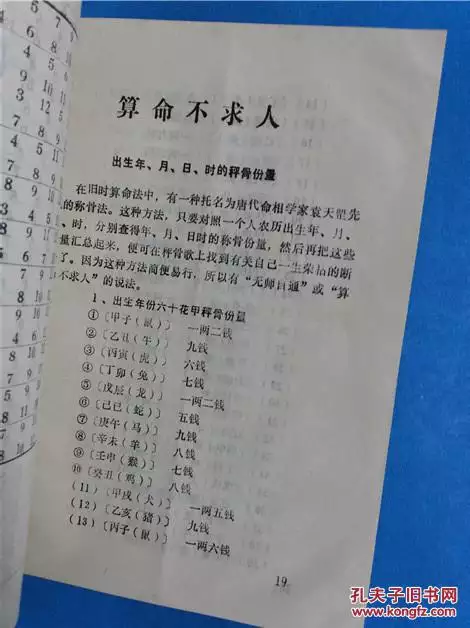 5 5 9
6 8 10
4 5 11
3 4 10
5 6
6
7
8
9
算命不求人
出生年、月、日、时的秤骨份量
在旧时算命法中，有一种托名为唐代命相学家袁天罡先
的称骨法。这种方法，只要对照一个人农历出生年、月、
、时，分别查得年、月、日时的称骨份量，然后再把这些
量汇总起来，便可在秤骨歌上找到有关自己一生荣枯的断
了。因为这种方法简便易行，所以有“无师自通”或“算
不求人”的说法。
1、出生年份六十花甲秤骨份量
①〔甲子（鼠）〕 一两二钱
②〔乙丑（牛）〕 九钱
③〔丙寅（虎）〕 六钱
④〔丁卯（兔）〕 七钱
⑤〔戊辰（龙）〕 一两二钱
⑥〔己巳（蛇）〕 五钱
⑦〔庚午（马）〕 九钱
⑧〔辛未（羊）〕 八钱
⑨〔壬申（猴）〕 七钱
⑩〔癸丑（鸡）〕 八钱
（11）〔甲戌（犬）〕 一两五钱
（12）〔乙亥（猪）〕 九钱
（13）〔丙子（鼠）〕 一两六钱
19
孔夫子旧书网
KONGFZ.COM